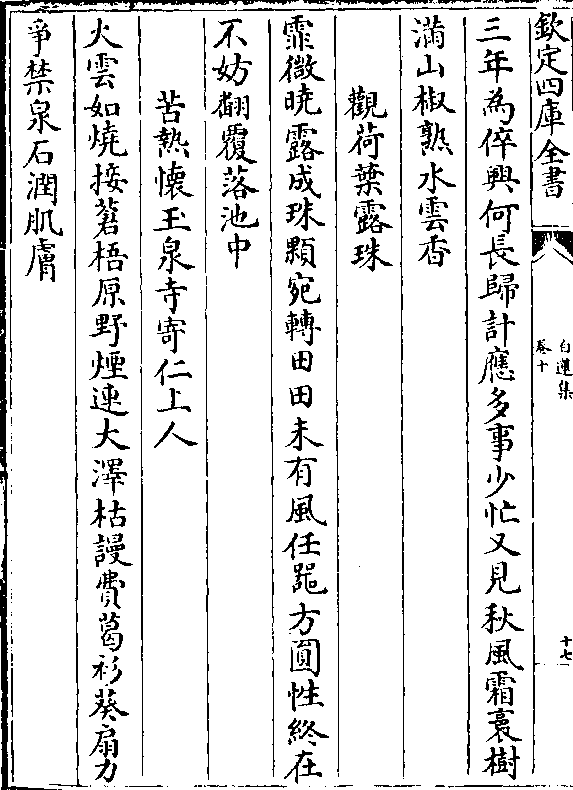 欽定四庫全書
白蓮集
卷十
十七
三年為倅興何長歸計應多事少忙又見秋風霜裛樹
滿山椒熟水雲香
觀荷葉露珠
霏微曉露成珠顆宛轉田田未有風任噐方圓性終在
不妨翻覆落池中
苦熱懷玉泉寺寄仁上人
火雲如燒接蒼梧原野煙連大澤枯謾費葛衫葵扇力
爭禁泉石潤肌膚